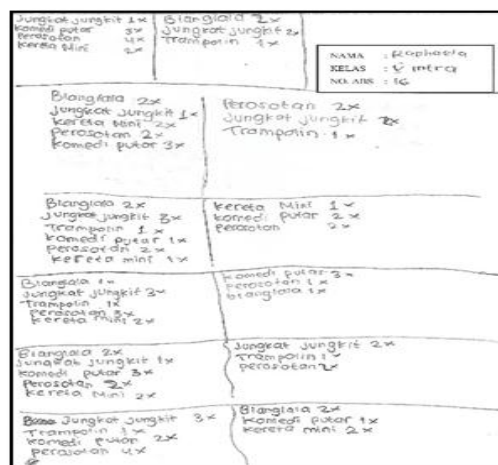 Jungkat jungkit 1x
Komedi putar 3x
Perosotan 4x
Kereta Mini 2x
Bianglala 2x
Jungkat jungkit 2x
Trampolin 1x
NAMA : Raphaela
KELAS : V intra
NO. ABS : 16
Bianglala 2x
Jungkat jungkit 1x
Kereta Mini 2x
Perosotan 2x
Komedi putar 3x
Perosotan 2x
Jungkat jungkit
Trampolin 1x
Bianglala 2x
Jungkat jungkit 3x
Trampolin 1x
Komedi putar 1x
perosotan 2x
kereta mini 1x
Kereta Mini 1x
komedi putar 2x
perosotan 2x
Bianglala 1x
Jungkat jungkit 3x
Trampolin 1x
Perosotan 3x
Kereta mini 2x
Komedi putar 3x
perosotan 1x
bianglala 1x
Bianglala 2x
Jungkat jungkit 1x
Komedi putar 3x
Perosotan 2x
Kereta Mini 2x
Jungkat jungkit 2x
Trampolin 1x
perosotan 2x
Jungkat jungkit 3x
Trampolin 1x
Komedi putar 2x
perosotan 4x
Bianglala 2x
Komedi putar 1x
Kereta mini 2x